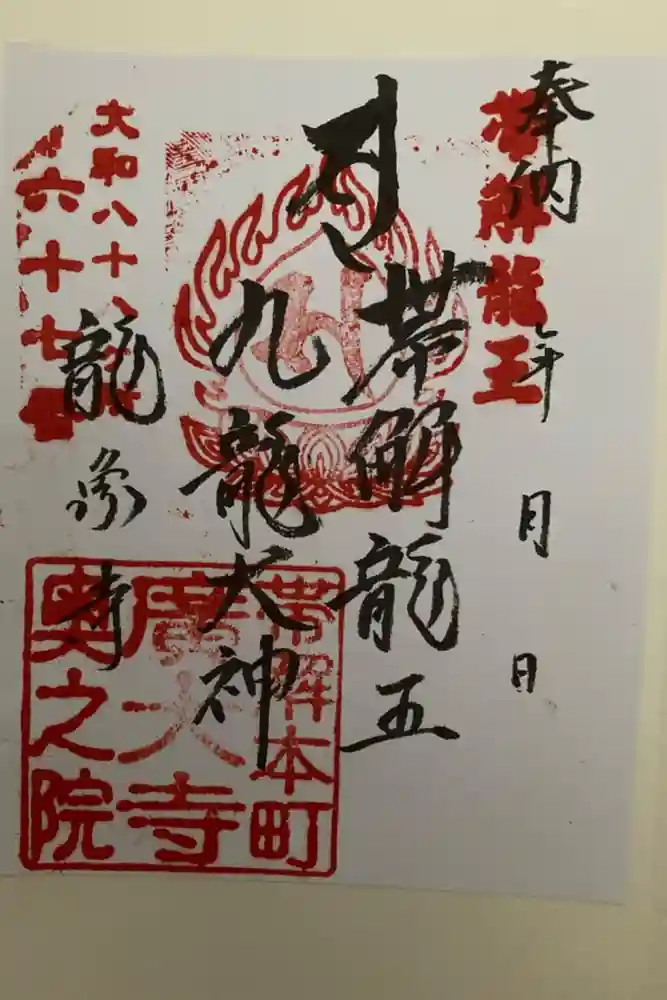 奉納
年 月 日
帯解龍王
帯解龍王
九龍大神
龍象寺
大和八十八
六十七番
帯解本町
廣大寺
奥之院